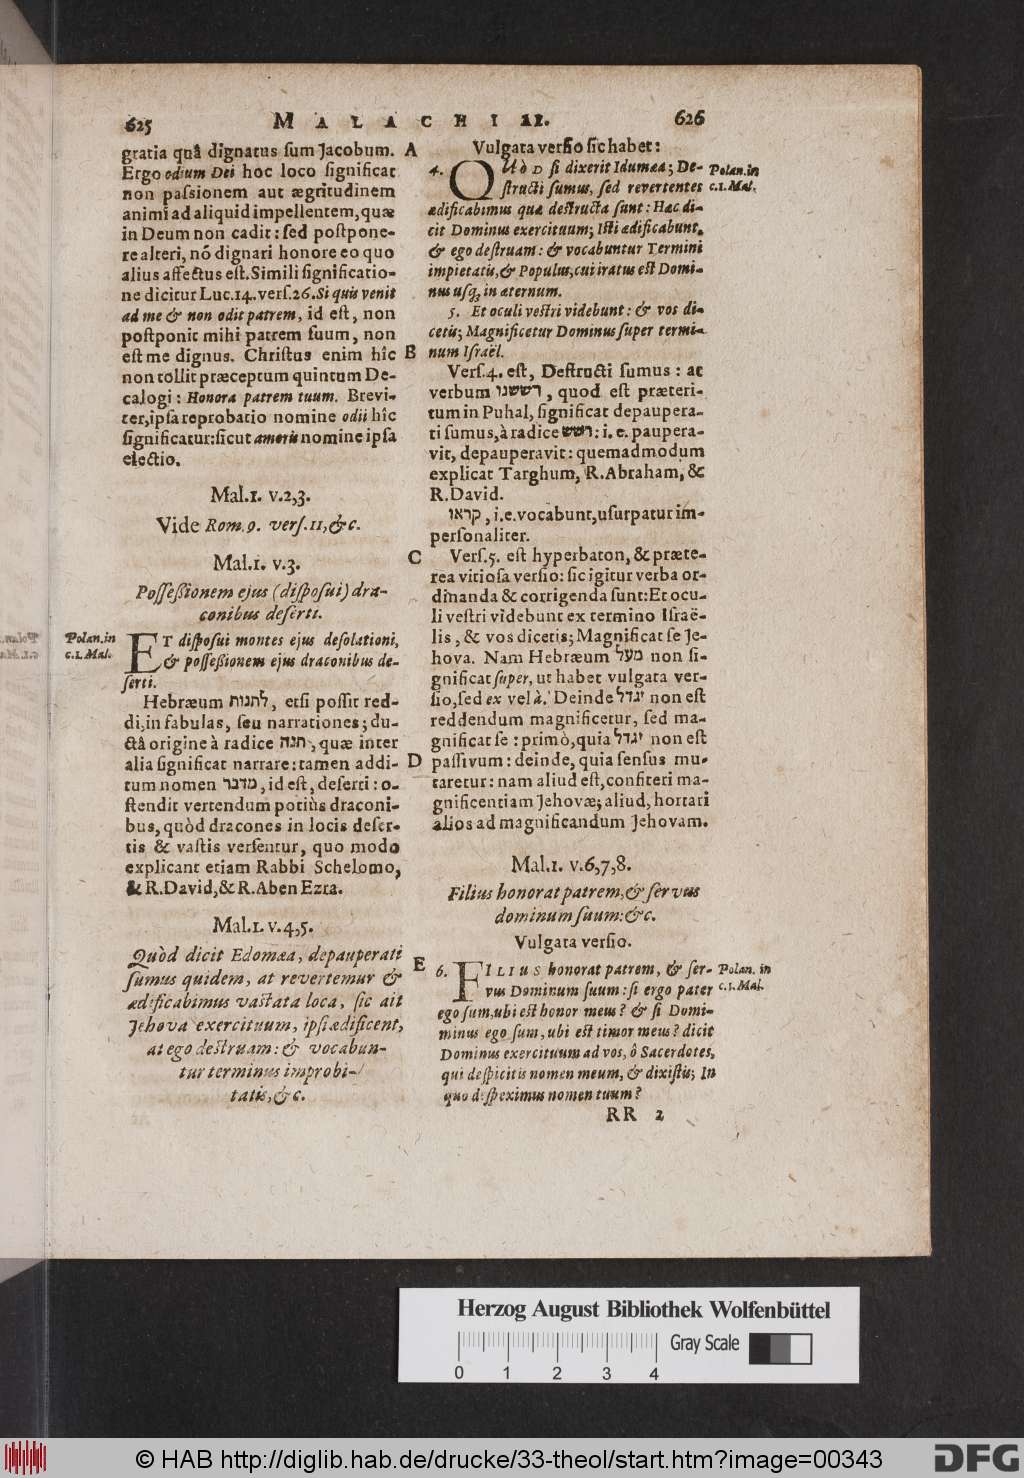 625
MALACHI II.
626
gratia quâ dignatus sum Jacobum.
Ergo odium Dei hoc loco significat
non passionem aut ægritudinem
animi ad aliquid impellentem, quæ
in Deum non cadit: sed postpone-
re alteri, nõ dignari honore eo quo
alius affectus est. Simili significatio-
ne dicitur Luc. 14. vers. 26. Si quis venit
ad me & non odit patrem, id est, non
postponit mihi patrem suum, non
est me dignus. Christus enim hîc
non tollit præceptum quintum De-
calogi: Honora patrem tuum. Brevi-
ter, ipsa reprobatio nomine odii hîc
significatur: sicut amoris nomine ipsa
electio.
Mal. 1. v. 2, 3.
Vide Rom. 9. vers. 11, &c.
Mal. 1. v. 3.
Possessionem ejus (disposui) dra-
conibus deserti.
Polan. in
c. 1. Mal.
ET disposui montes ejus desolationi,
& possessionem ejus draconibus de-
serti.
Hebræum לתנות, etsi possit red-
di, in fabulas, seu narrationes; du-
ctâ origine à radice תנה, quæ inter
alia significat narrare: tamen addi-
tum nomen מדבר, id est, deserti: o-
stendit vertendum potiùs draconi-
bus, quòd dracones in locis deser-
tis & vastis versentur, quo modo
explicant etiam Rabbi Schelomo,
& R. David, & R. Aben Ezra.
Mal. 1. v. 4, 5.
Quòd dicit Edomæa, depauperati
sumus quidem, at revertemur &
ædificabimus vastata loca, sic ait
Jehova exercituum, ipsi ædificent,
at ego destruam: & vocabun-
tur terminus improbi-
tatis, &c.
A
B
C
D
E
Vulgata versio sic habet:
4. QUÒD si dixerit Idumæa; De-
structi sumus, sed revertentes
ædificabimus quæ destructa sunt: Hæc di-
cit Dominus exercituum; Isti ædificabunt,
& ego destruam: & vocabuntur Termini
impietatis, & Populus, cui iratus est Domi-
nus usq; in æternum.
Polan. in
c. 1. Mal.
5. Et oculi vestri videbunt: & vos di-
cetis; Magnificetur Dominus super termi-
num Israël.
Vers. 4. est, Destructi sumus: at
verbum רששנו, quod est præteri-
tum in Puhal, significat depaupera-
ti sumus, à radice רשש: i. e. paupera-
vit, depauperavit: quemadmodum
explicat Targhum, R. Abraham, &
R. David.
קראו, i. e. vocabunt, usurpatur im-
personaliter.
Vers. 5. est hyperbaton, & præte-
rea vitiosa versio: sic igitur verba or-
dinanda & corrigenda sunt: Et ocu-
li vestri videbunt ex termino Israë-
lis, & vos dicetis; Magnificat se Je-
hova. Nam Hebræum מעל non si-
gnificat super, ut habet vulgata ver-
sio, sed ex vel à. Deinde יגדל non est
reddendum magnificetur, sed ma-
gnificat se: primò, quia יגדל non est
passivum: deinde, quia sensus mu-
taretur: nam aliud est, confiteri ma-
gnificentiam Jehovæ; aliud, hortari
alios ad magnificandum Jehovam.
Mal. 1. v. 6, 7, 8.
Filius honorat patrem, & servus
dominum suum: &c.
Vulgata versio.
6. FILIUS honorat patrem, & ser-
vus Dominum suum: si ergo pater
ego sum, ubi est honor meus? & si Domi-
minus ego sum, ubi est timor meus? dicit
Dominus exercituum ad vos, ô Sacerdotes,
qui despicitis nomen meum, & dixistis; In
quo despeximus nomen tuum?
Polan. in
c. 1. Mal.
RR 2
Herzog August Bibliothek Wolfenbüttel
Gray Scale
0 1 2 3 4
© HAB http://diglib.hab.de/drucke/33-theol/start.htm?image=00343
DFG